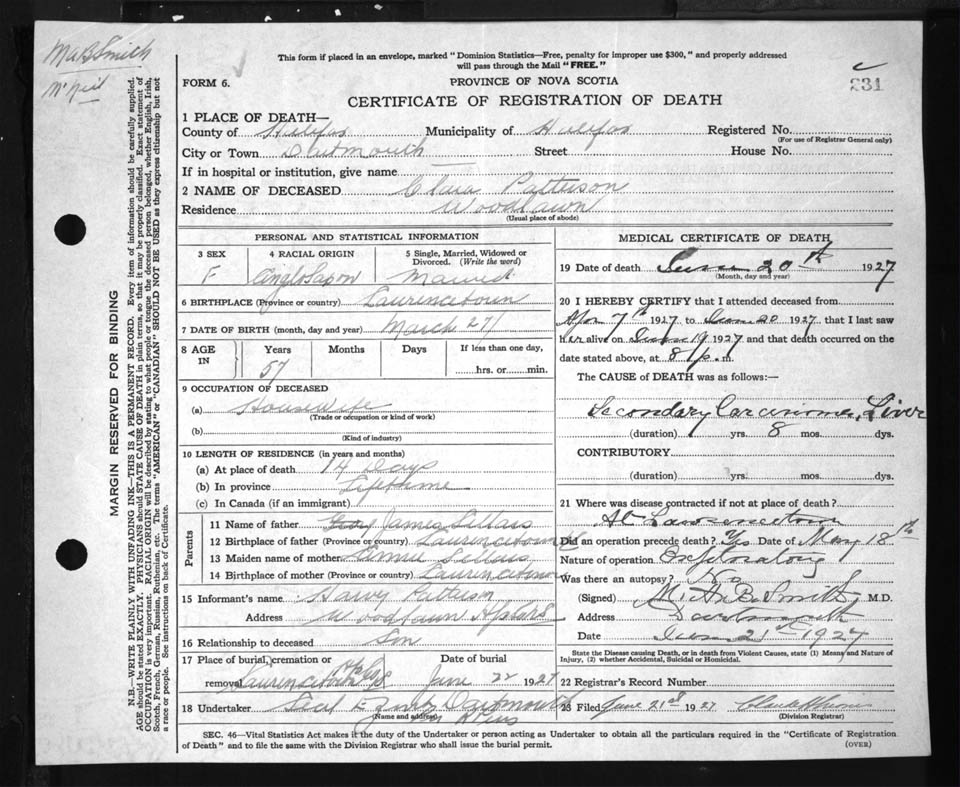 MaB Smith
McNeil
This form if placed in an envelope, marked "Dominion Statistics—Free, penalty for improper use $300," and properly addressed
will pass through the Mail "FREE."
FORM 6.
PROVINCE OF NOVA SCOTIA
231
CERTIFICATE OF REGISTRATION OF DEATH
1 PLACE OF DEATH—
County of Halifax Municipality of Halifax Registered No.
(For use of Registrar General only)
City or Town Dartmouth Street House No.
If in hospital or institution, give name
2 NAME OF DECEASED Clara Patterson
Residence Woodlawn
(Usual place of abode)
PERSONAL AND STATISTICAL INFORMATION
3 SEX 4 RACIAL ORIGIN 5 Single, Married, Widowed or
Divorced. (Write the word)
F Anglo Saxon Married
6 BIRTHPLACE (Province or country) Lawrencetown
7 DATE OF BIRTH (month, day and year) March 27
8 AGE IN Years Months Days If less than one day,
57 hrs. or min.
9 OCCUPATION OF DECEASED
(a) Housewife
(Trade or occupation or kind of work)
(b)
(Kind of industry)
10 LENGTH OF RESIDENCE (in years and months)
(a) At place of death 14 Days
(b) In province Lifetime
(c) In Canada (if an immigrant)
Parents
11 Name of father James Sellars
12 Birthplace of father (Province or country) Lawrencetown
13 Maiden name of mother Sellars
14 Birthplace of mother (Province or country) Lawrencetown
15 Informant's name Harvy Patterson
Address Woodlawn
16 Relationship to deceased Son
17 Place of burial, cremation or Date of burial
removal Lawrencetown June 22 1927
18 Undertaker Dartmouth
(Name and address)
MEDICAL CERTIFICATE OF DEATH
19 Date of death June 20th 1927
(Month, day and year)
20 I HEREBY CERTIFY that I attended deceased from
Apr 7th 1927 to June 20 1927 that I last saw
her alive on June 19 1927 and that death occurred on the
date stated above, at 8 p. m.
The CAUSE OF DEATH was as follows:—
Secondary Carcinoma, Liver
(duration) yrs. 8 mos. dys.
CONTRIBUTORY
(duration) yrs. mos. dys.
21 Where was disease contracted if not at place of death?
At Lawrencetown
Did an operation precede death? Yes Date of May 18th
Nature of operation Exploratory
Was there an autopsy? No
(Signed) M. A. B. Smith M.D.
Address Dartmouth
Date June 21st 1927
State the Disease causing Death, or in death from Violent Causes, state (1) Means and Nature of
Injury, (2) whether Accidental, Suicidal or Homicidal.
22 Registrar's Record Number
23 Filed June 21st 1927
(Division Registrar)
SEC. 46—Vital Statistics Act makes it the duty of the Undertaker or person acting as Undertaker to obtain all the particulars required in the "Certificate of Registration
of Death" and to file the same with the Division Registrar who shall issue the burial permit.
(OVER)
MARGIN RESERVED FOR BINDING
N.B.—WRITE PLAINLY WITH UNFADING INK—THIS IS A PERMANENT RECORD. Every item of information should be carefully supplied.
AGE should be stated EXACTLY. PHYSICIANS should STATE CAUSE OF DEATH in plain terms, so that it may be properly classified. Exact statement of
OCCUPATION is very important. RACIAL ORIGIN will be described by stating to what people or tongue the deceased person belonged, whether English, Irish,
Scotch, French, German, Russian, Ruthenian, etc. The terms "AMERICAN" or "CANADIAN" SHOULD NOT BE USED as they express citizenship but not
a race or people. See instructions on back of Certificate.